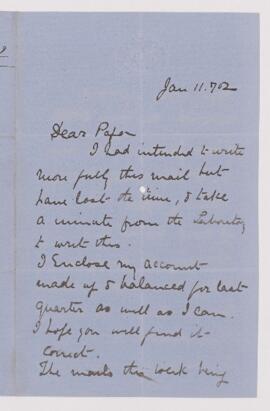 Jan 11. 72
Dear Papa
I had intended to write
more fully this mail but
have lost the time, & take
a minute from the Laboratory
to write this.
I Enclose my account
made up & balanced for last
quarter as well as I can.
I hope you will find it
correct.
The marks this week being